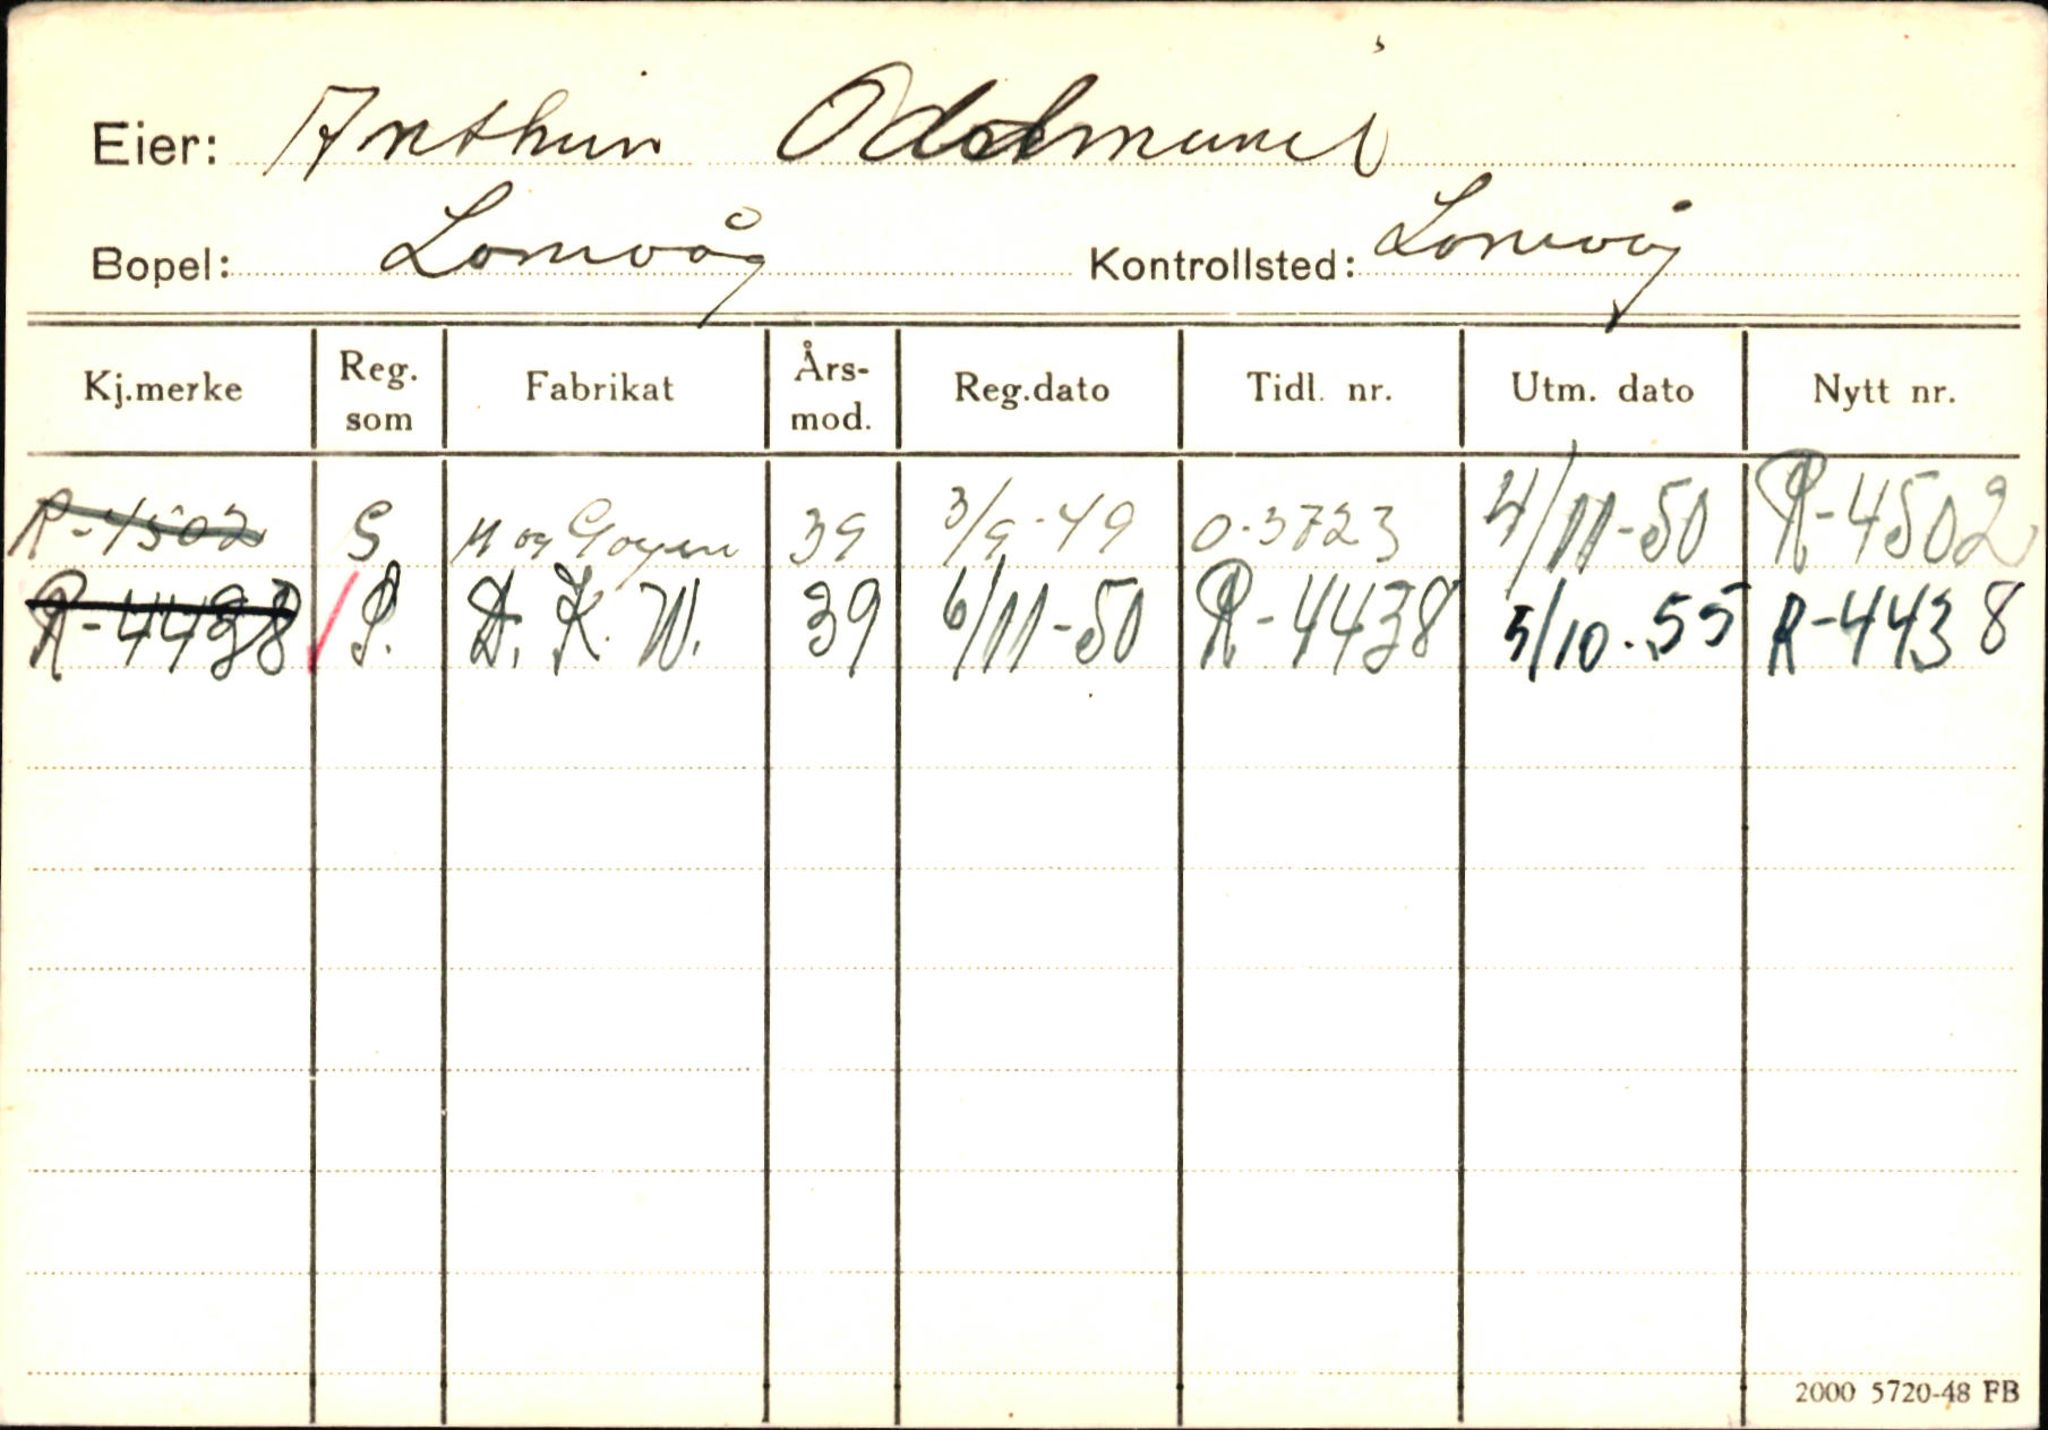 Eier: Arthur Oddmund
Bopel: Lomvåg Kontrollsted: Lomvåg
Kj.merke Reg. som Fabrikat Års-mod. Reg.dato Tidl. nr. Utm. dato Nytt nr.
R-4502 S 39 3/9-49 O-3723 4/11-50 R-4502
R-4438 P. D.K.W. 39 6/11-50 R-4438 5/10.55 R-4438
2000 5720-48 FB